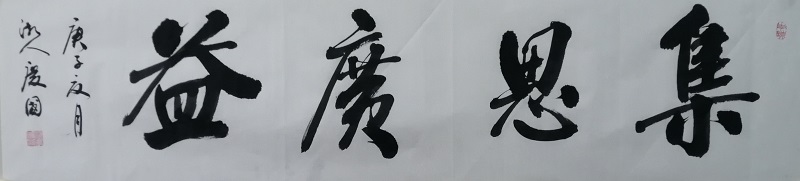 集思廣益
庚子夏月
人慶國